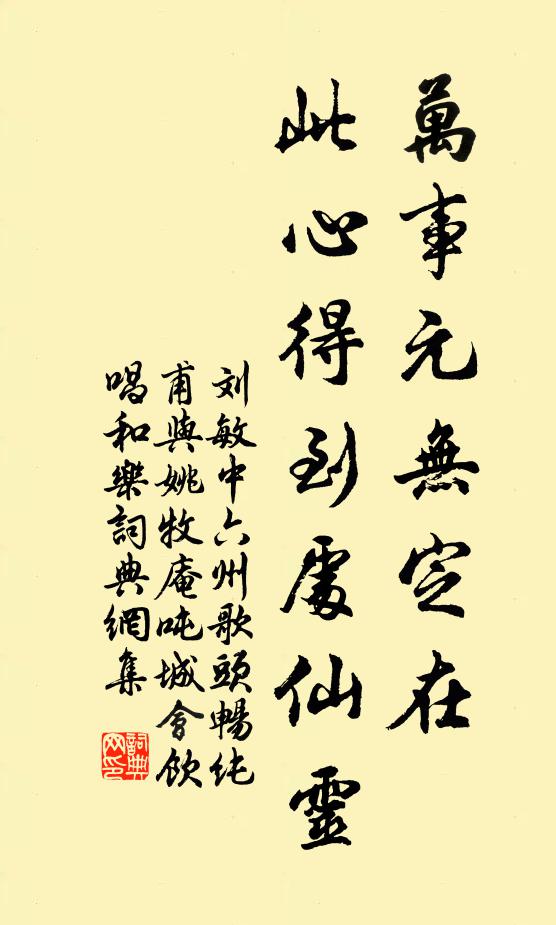 萬事元無定在
此心得到處仙靈
刘敏中六州歌頭暢純
甫與姚牧庵吨城會飲
唱和樂詞典網集
詞典网印